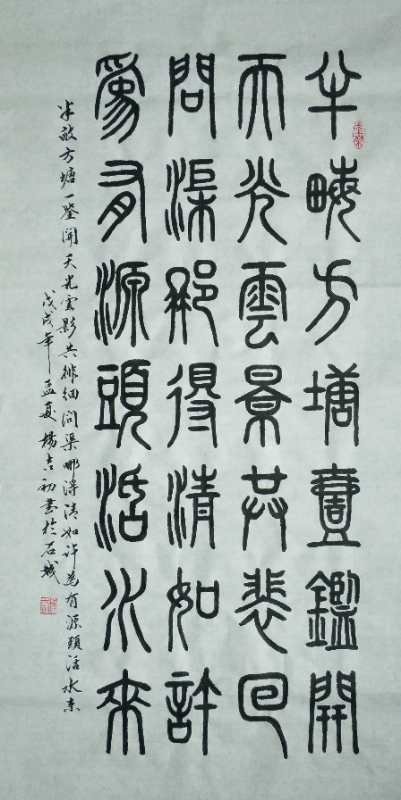 半畮方塘壹鑑開
天光雲景共裴回
問渠那得清如許
為有源頭活水來
半畝方塘一鑒開天光雲影共徘徊問渠哪得清如許為有源頭活水來
戊戌年孟夏楊吉初書於石城